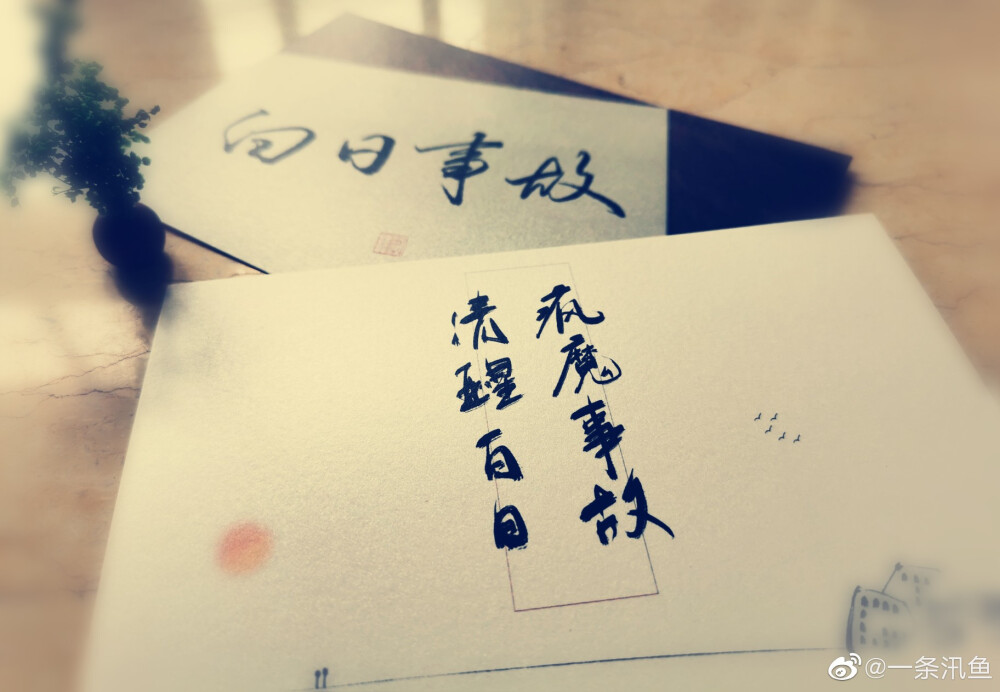 向日事故
疯魔事故
清醒百日
@一条汛鱼